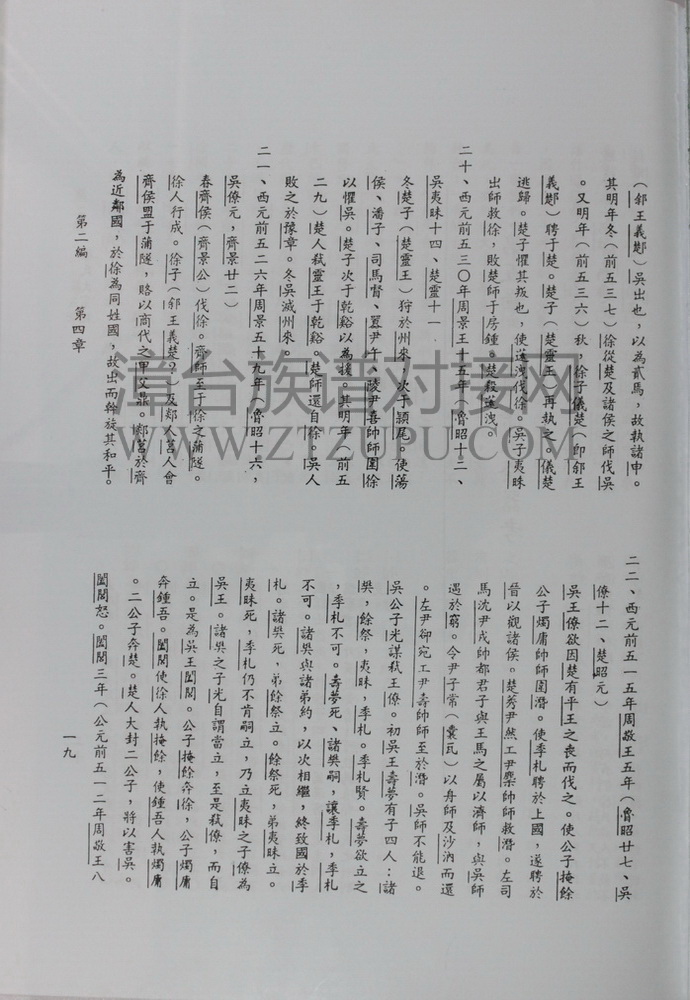 （郐王義鄒）吳出也，以為貳焉，故執諸申。
其明年冬（前五三七）徐從楚及諸侯之師伐吳
。又明年（前五三六）秋，徐子儀楚（即郐王
義鄒）聘于楚。楚子（楚靈王）再執之，儀楚
逃歸。楚子懼其叛也，使薳洩伐徐。吳子夷昧
出師救徐，敗楚師于房鍾。楚殺薳洩。
二十、西元前五三〇年周景王十五年（魯昭十二、
吳夷昧十四、楚靈十一
冬楚子（楚靈王）狩於州來，次于潁尾。使蕩
侯、潘子、司馬督、囂尹午、陵尹喜帥師圍徐
以懼吳。楚子次于乾谿以為援。其明年（前五
二九）楚人弒靈王于乾谿。楚師還自徐。吳人
敗之於豫章。冬吳滅州來。
二一、西元前五二六年周景五十九年（魯昭十六，
吳僚元，齊景廿二）
春齊侯（齊景公）伐徐。齊師至于徐之蒲隧。
徐人行成。徐子（郐王義楚？）及郯人莒人會
齊侯盟于蒲隧，賂以商代之甲父鼎，郯莒於齊
為近鄰國，於徐為同姓國，故出而斡旋其和平。
第二編　第四章
二二、西元前五一五年周敬王五年（魯昭廿七、吳
僚十二、楚昭元）
吳王僚欲因楚有平王之喪而伐之。使公子掩餘
公子燭庸帥師圍潛。使季札聘於上國，遂聘於
晉以觀諸侯。楚莠尹然工尹麇帥師救潛。左司
馬沈尹戌帥都君子與王馬之屬以濟師，與吳師
遇於窮。令尹子常（囊瓦）以舟師及沙汭而還
。左尹郤宛工尹壽帥師至於潛。吳師不能退。
吳公子光謀弒王僚。初吳王壽夢有子四人：諸
樊，餘祭，夷昧，季札。季札賢。壽夢欲立之
，季札不可。壽夢死、諸樊嗣，讓季札，季札
不可。諸樊與諸弟約，以次相繼，終致國於季
札。諸樊死，弟餘祭立。餘祭死，弟夷昧立。
夷昧死，季札仍不肯嗣立，乃立夷昧之子僚為
吳王。諸樊之子光自謂當立，至是弒僚，而自
立。是為吳王闔閭。公子掩餘奔徐，公子燭庸
奔鍾吾。闔閭使徐人執掩餘，使鍾吾人執燭庸
。二公子奔楚。楚人大封二公子，將以害吳。
闔閭怒。闔閭三年（公元前五一二年周敬王八
一九
漳台族谱对接网
WWW.ZTZUPU.COM